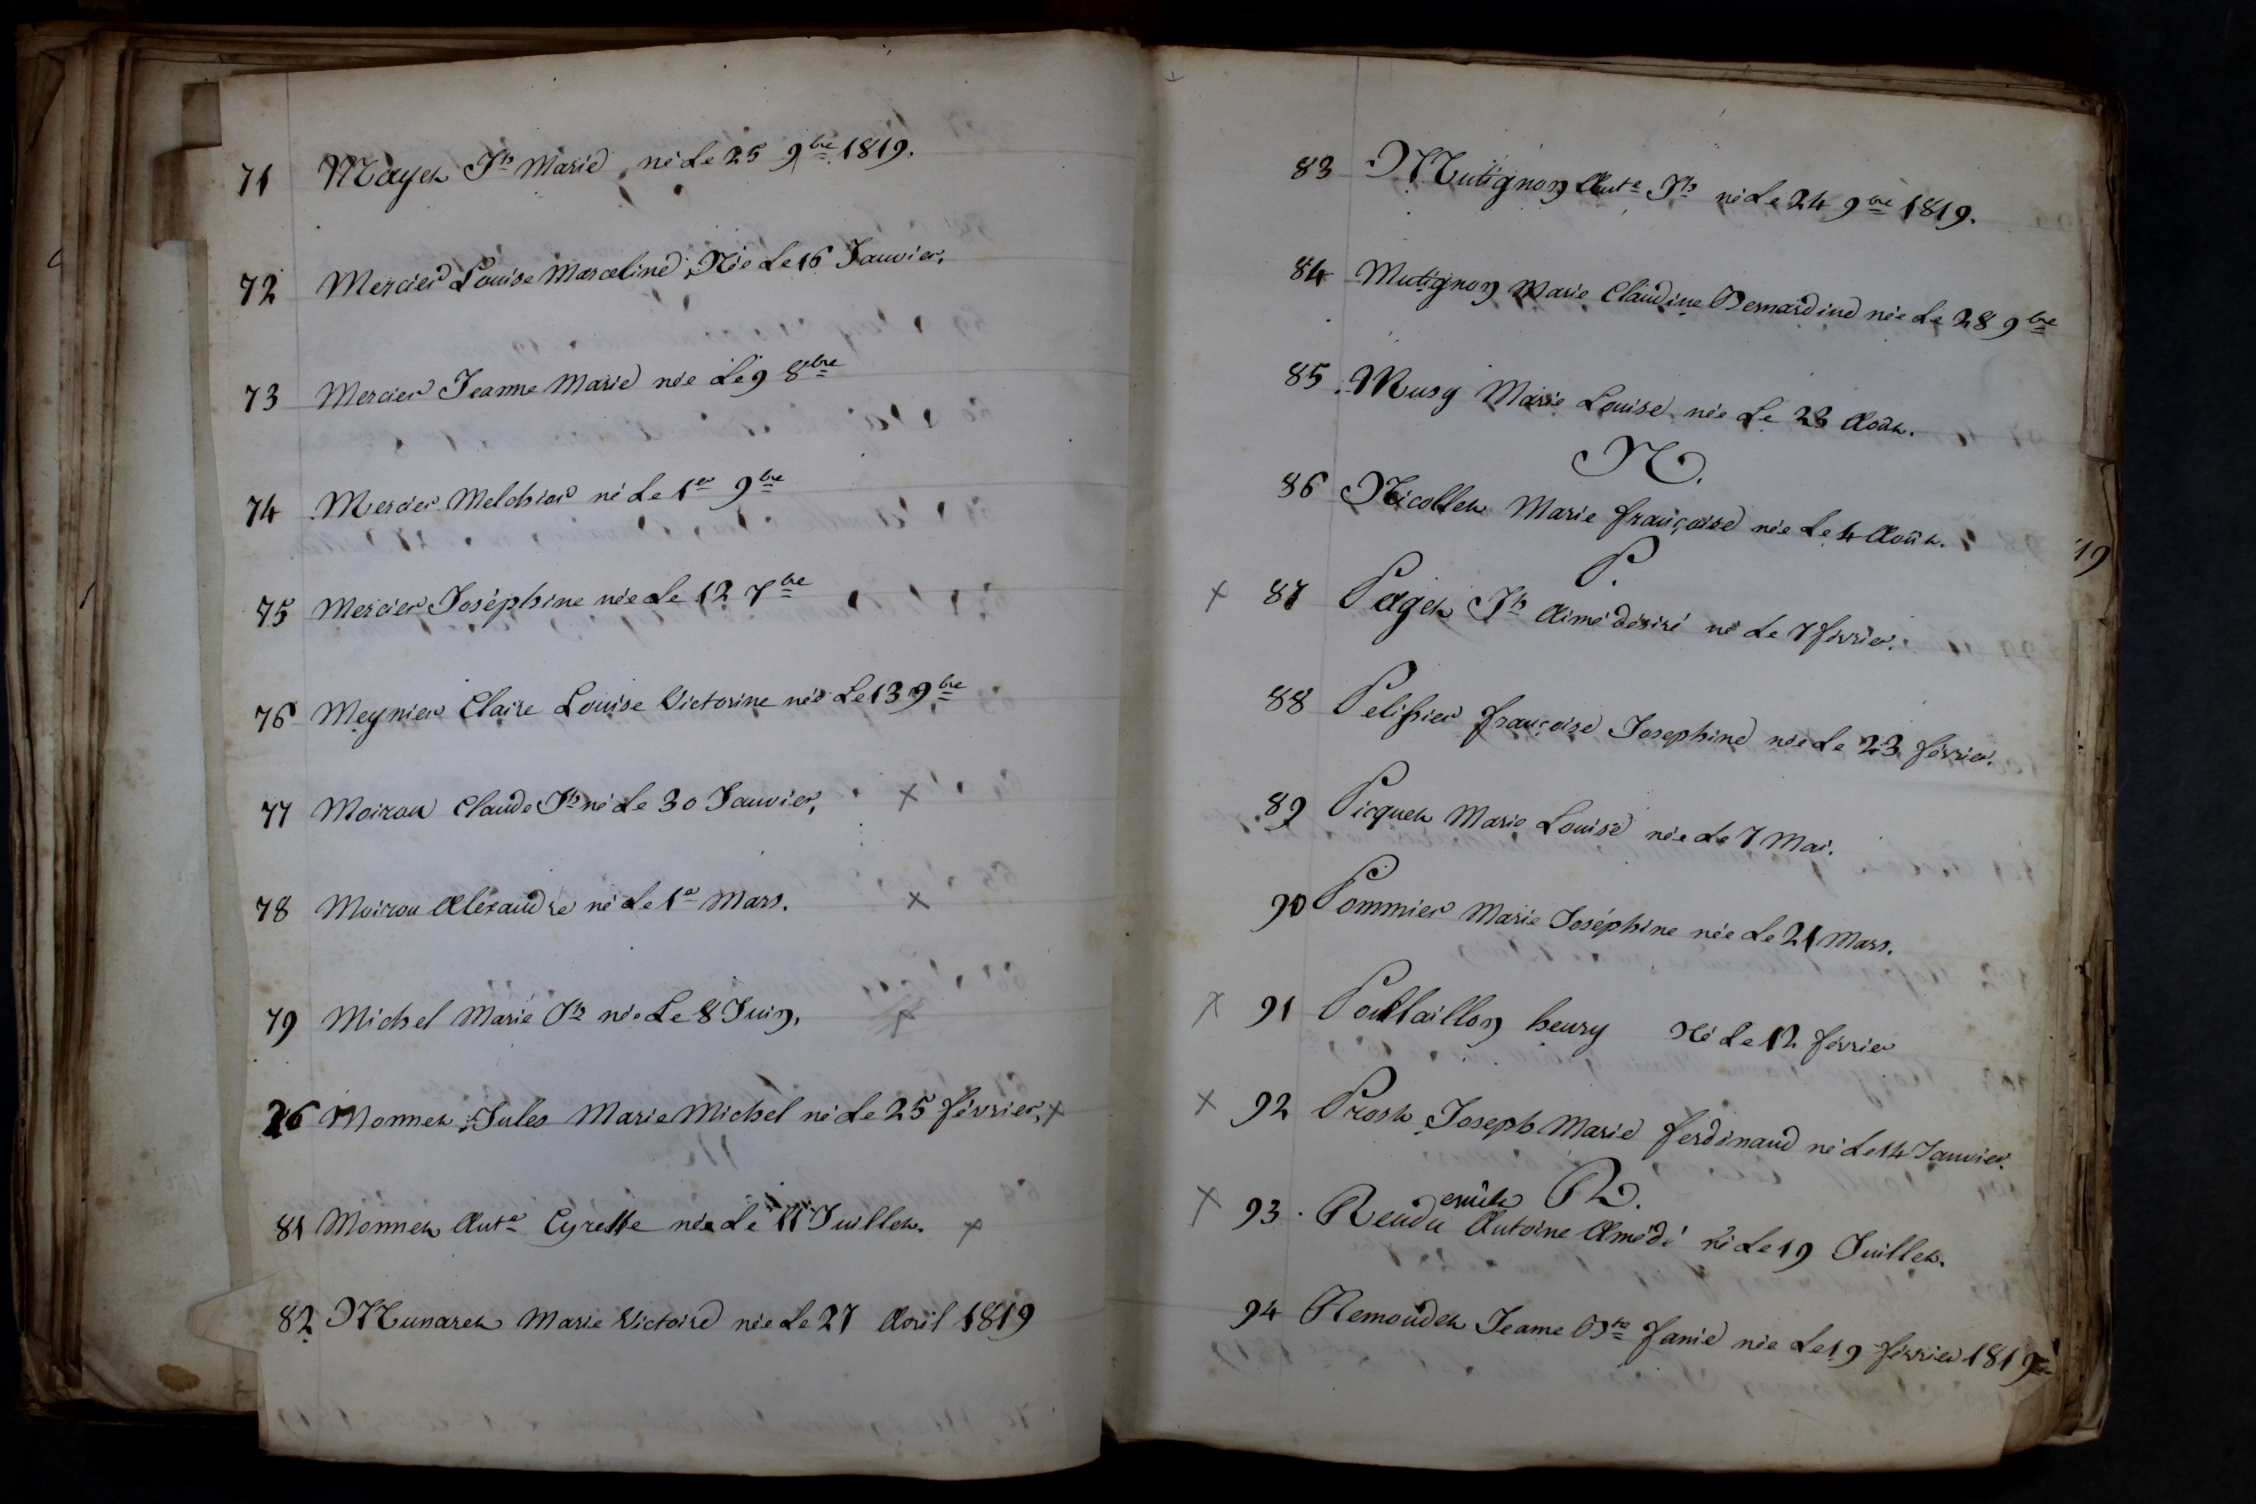 71 Mayet Jh Marie, né le 25 9bre 1819.
72 Mercier Louise Marceline, Née le 16 Janvier,
73 Mercier Jeanne Marie née le 9 8bre
74 Mercier Melchior né le 1er 9bre
75 Mercier Joséphine née le 12 7bre
76 Meynier Claire Louise Victorine née le 13 9bre
77 Moirou Claude Jh né le 30 Janvier, x
78 Moirou Alexandre né le 1er Mars. x
79 Michel Marie née le 8 Juin, x
Monnet Jules Marie Michel né le 25 février, x
81 Monnet Ante Cyrette née le 11 Juillet. x
82 Munaret Marie Victoire née le 27 Avril 1819
83 Mutignon Ante Jh né le 24 9bre 1819.
84 Mutignon Marie Claudine Bernardine née le 28 9bre
85 Musy Marie Louise née le 23 Août.
N.
86 Nicollet Marie françoise née le 4 Août.
P.
x 87 Paget Jh Aimé désiré né le 7 février.
88 Pelissier françoise Josephine née le 23 février.
89 Picquet Marie Louise née le 7 Mai.
90 Pommier Marie Joséphine née le 21 Mars.
x 91 henry Né le 12 février
x 92 Prost Joseph Marie ferdinand né le 14 Janvier.
R.
x 93. Rendu Antoine Amédé né le 19 Juillet.
94 Remondet Jeanne Bte fanie née le 19 février 1819